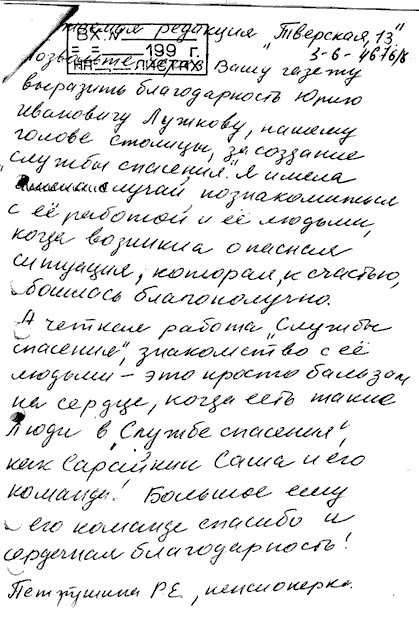 редакция "Тверская, 13"
ВХ. N
199 г.
НА ЛИСТАХ
3-6-4676/8
Вашу газету
выразить благодарность Юрию
Ивановичу Лужкову, нашему
голове столицы, за создание
"службы спасения". Я имела
случай познакомиться
с её работой и её людьми,
когда возникла опасная
ситуация, которая, к счастью,
обошлась благополучно.
А четкая работа "Службы
спасения", знакомство с её
людьми – это просто бальзам
на сердце, когда есть такие
люди в "Службе спасения",
как Сарайкин Саша и его
команда! Большое ему
и его команде спасибо и
сердечная благодарность!
Р.Е., пенсионерка.